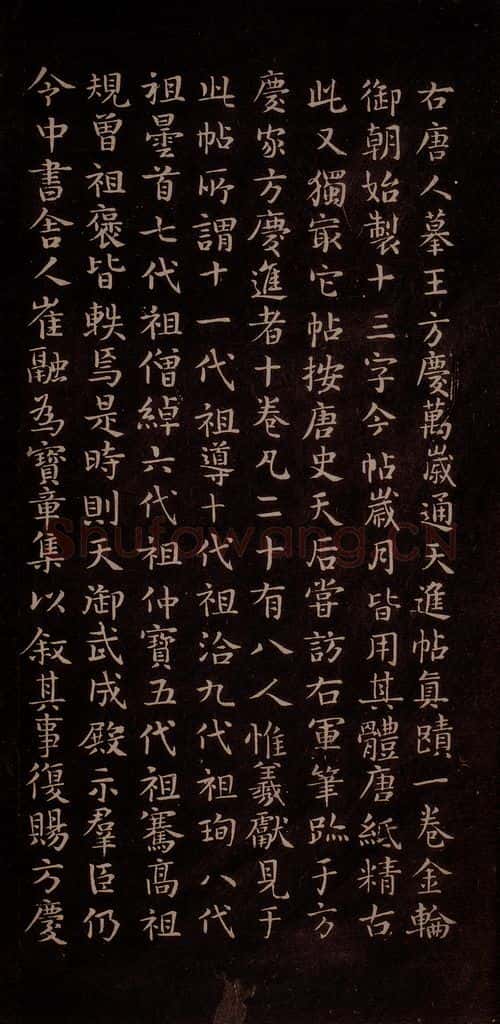 右唐人摹王方慶萬歲通天進帖真蹟一卷金輪
御朝始製十三字今帖歲月皆用其體唐紙精古
此又獨冣它帖按唐史天后嘗訪右軍筆跡于方
慶家方慶進者十卷凡二十有八人惟羲獻見于
此帖所謂十一代祖導十代祖洽九代祖珣八代
祖曇首七代祖僧綽六代祖仲寶五代祖騫高祖
規曾祖褒皆軼焉是時則天御武成殿示羣臣仍
令中書舍人崔融為寶章集以叙其事復賜方慶
Shufawang.CN